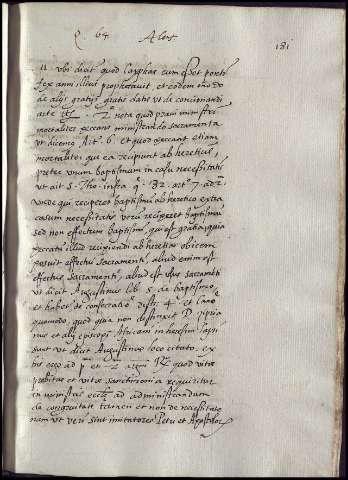 q. 64 Ales 181
11. ubi dicit quod Cayphas cum esset ponti
fex anni illius prophetavit et eodem modo
de aliis gratiis gratis datis ut de concionandi
arte etc. 2 nota quod pravi ministri
mortaliter peccant ministrando sacramenta
ut dicemus art. 6 et quod peccant etiam
mortaliter qui ea recipiunt ab hereticis
preter unum baptismum in casu necessitatis
ut ait S. Tho. infra q. 82 art. 7 ad 2
unde qui reciperet baptismu ab heretico extra
casum necessitatis vere reciperet baptismu
sed non effectum baptismi, qui est gratia, quia
peccatu illud recipiendi ab hereticis obicem
ponit effectui sacramenti, aliud enim est
effectus sacramenti, aliud est usus sacramti
ut dicit Augustinus lib. 5 de baptismo
et habetr de consecratio. dist. 4 et Cano
quomodo, quod quia non distinxit D. Cipria
nus et alii episcopi Africani in heresim lapsi
sunt ut dicit Augustinus loco citato. ex
his ad p et 2 quod vite
probitas et vite sanctimonia requiritur
in ministris eccle ad administrandum
de congruitate tamen et non de necessitate
nam ut veri sint imitatores Petri et Apostolor